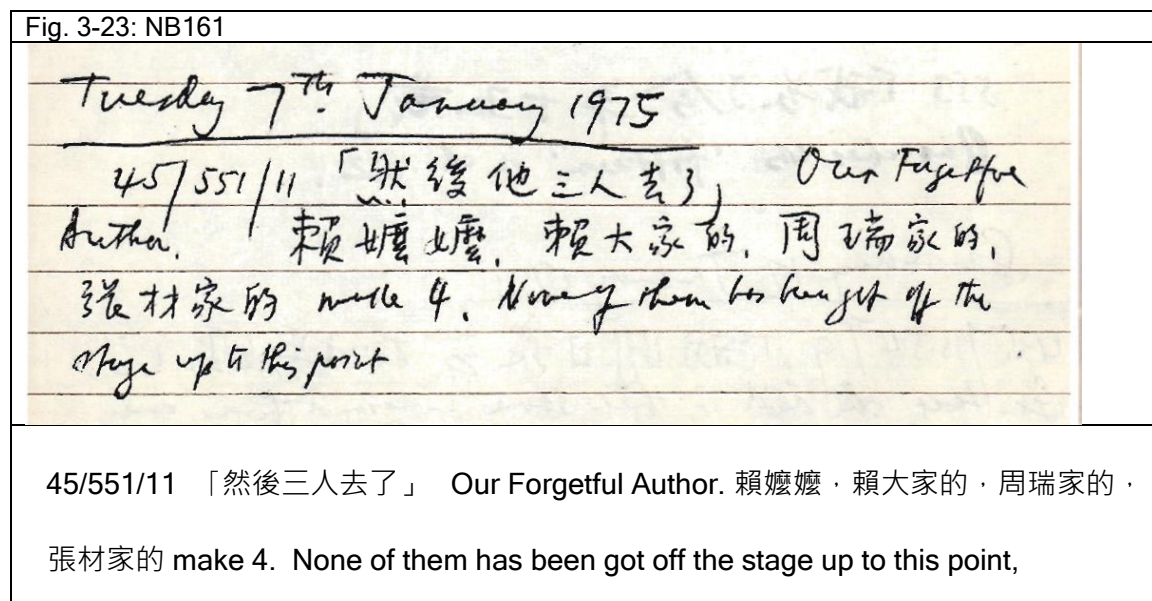 Fig. 3-23: NB161
Tuesday 7th. January 1975
45/551/11 「然後他三人去了」 Our Forgetful
Author. 賴嬤嬤, 賴大家的, 周瑞家的,
張材家的 make 4. None of them has been got off the
stage up to this point
45/551/11 「然後三人去了」 Our Forgetful Author. 賴嬤嬤，賴大家的，周瑞家的，
張材家的 make 4. None of them has been got off the stage up to this point,